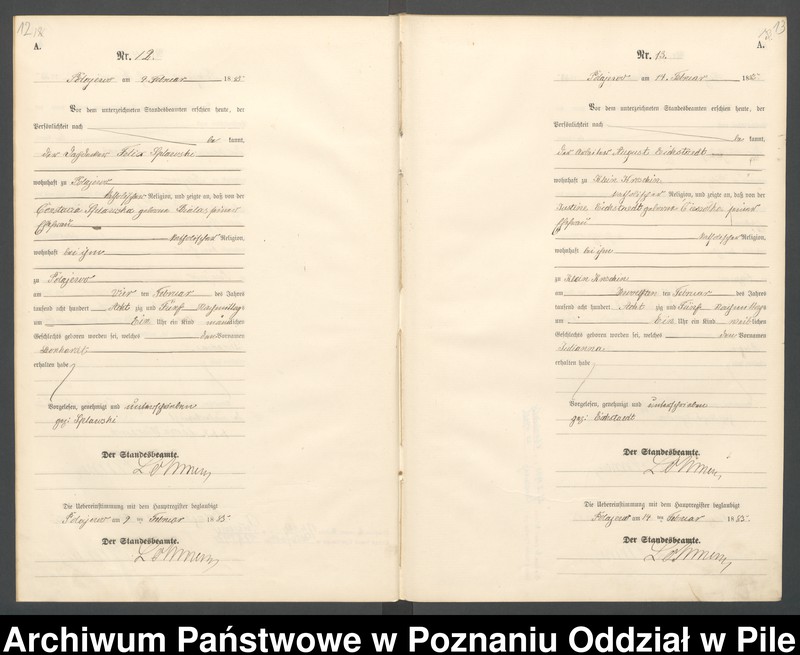 12
A.
Nr. 12.
Polajewo am 9. Februar 1885
Vor dem unterzeichneten Standesbeamten erschien heute, der
Persönlichkeit nach
be kannt,
der Felix Splawski
wohnhaft zu Polajewo
katholischer Religion, und zeigte an, daß von der
Constacia Splawska geborene seiner
Ehefrau
katholischer Religion,
wohnhaft bei ihm
zu Polajewo
am Vier ten Februar des Jahres
tausend acht hundert Acht zig und Fünf Nachmittags
um Ein Uhr ein Kind männlichen
Geschlechts geboren worden sei, welches den Vornamen
erhalten habe
Vorgelesen, genehmigt und unterschrieben
gez: Splawski
Der Standesbeamte.
Die Uebereinstimmung mit dem Hauptregister beglaubigt
Polajewo am 9 ten Februar 1885
Der Standesbeamte.
13
A.
Nr. 13.
Polajewo am 14. Februar 1885
Vor dem unterzeichneten Standesbeamten erschien heute, der
Persönlichkeit nach
be kannt,
der Arbeiter August Eichstaedt
wohnhaft zu Klein Kroschin
katholischer Religion, und zeigte an, daß von der
Justine Eichstaedt geborene seiner
Ehefrau
katholischer Religion,
wohnhaft bei ihm
zu Klein Kroschin
am Zwoelften ten Februar des Jahres
tausend acht hundert Acht zig und Fünf Nachmittags
um Ein Uhr ein Kind weiblichen
Geschlechts geboren worden sei, welches den Vornamen
Julianna
erhalten habe
Vorgelesen, genehmigt und unterschrieben
gez: Eichstaedt
Der Standesbeamte.
Die Uebereinstimmung mit dem Hauptregister beglaubigt
Polajewo am 14 ten Februar 1885.
Der Standesbeamte.
Archiwum Państwowe w Poznaniu Oddział w Pile